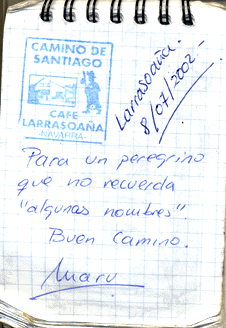 CAMINO DE
SANTIAGO
CAFE
LARRASOAÑA
-NAVARRA-
Larrasoaña.-
8/07/2002.-
Para un peregrino
que no recuerda
"algunas nombres".
Buen Camino.
Maru